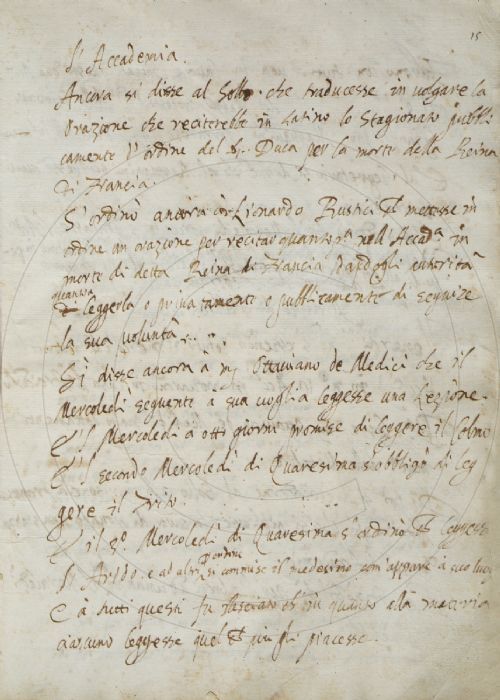 15
l'Accademia.
Ancora si disse al Sollo che traducesse in volgare la
Orazione che reciterebbe in latino lo Stagionato publi
camente p ordine del Duca per la morte della Reina
di Francia.
S'ordinò ancora à Lionardo Rustici mettesse in
ordine un orazione per recitar quanto pª nell Accadª in
morte di detta Reina di Francia dandogli autorità
quanto a
leggerla o privatamente o publicamente di seguire
la sua volontà.
Si disse ancora à mj Ottaviano de Medici che il
Mercoledi seguente a sua voglia leggesse una Lezione.
E'l Mercoledi a otti giorni promise di leggere il Colmo
E'l secondo Mercoledi di Quaresima s'obbligò di leg
gere il
E il 3º Mercoledi di Quaresima s'ordinò leggesse
l'Arido. e ad altri si commise il medesimo com'appare à suo luo
E à tutti questi fu lasciato quanto alla materia
ciascuno leggesse quel più gli piacesse.